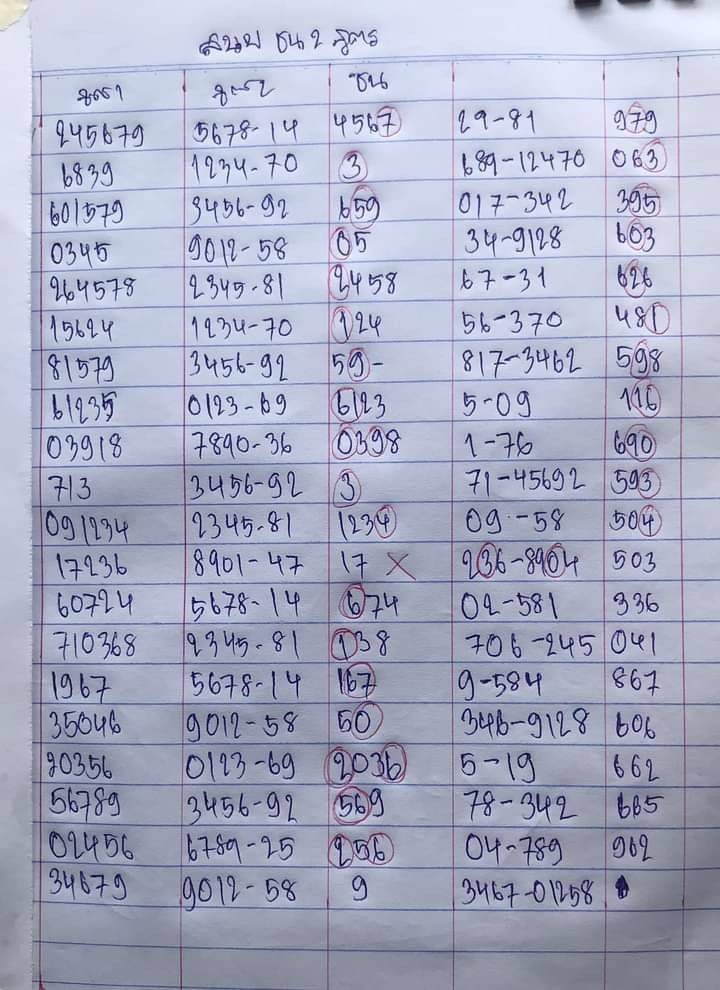 สนบบ ชน 2 สูตร
สูตร1 สูตร2 ชน
245679 5678-14 4567 29-81 979
6839 1234-70 3 689-12470 063
601579 3456-92 659 017-342 395
0345 9012-58 05 34-9128 603
264578 2345-81 2458 67-31 626
15624 1234-70 124 56-370 481
81579 3456-92 59- 817-3462 598
61235 0123-69 6123 5-09 116
03918 7890-36 0398 1-76 690
713 3456-92 3 71-45692 593
091234 2345-81 1234 09-58 504
17236 8901-47 17 X 236-8904 503
60724 5678-14 674 02-581 336
710368 2345-81 138 706-245 041
1967 5678-14 167 9-584 867
35046 9012-58 50 346-9128 606
20356 0123-69 2036 5-19 662
56789 3456-92 569 78-342 665
02456 6789-25 256 04-789 962
34679 9012-58 9 3467-01258